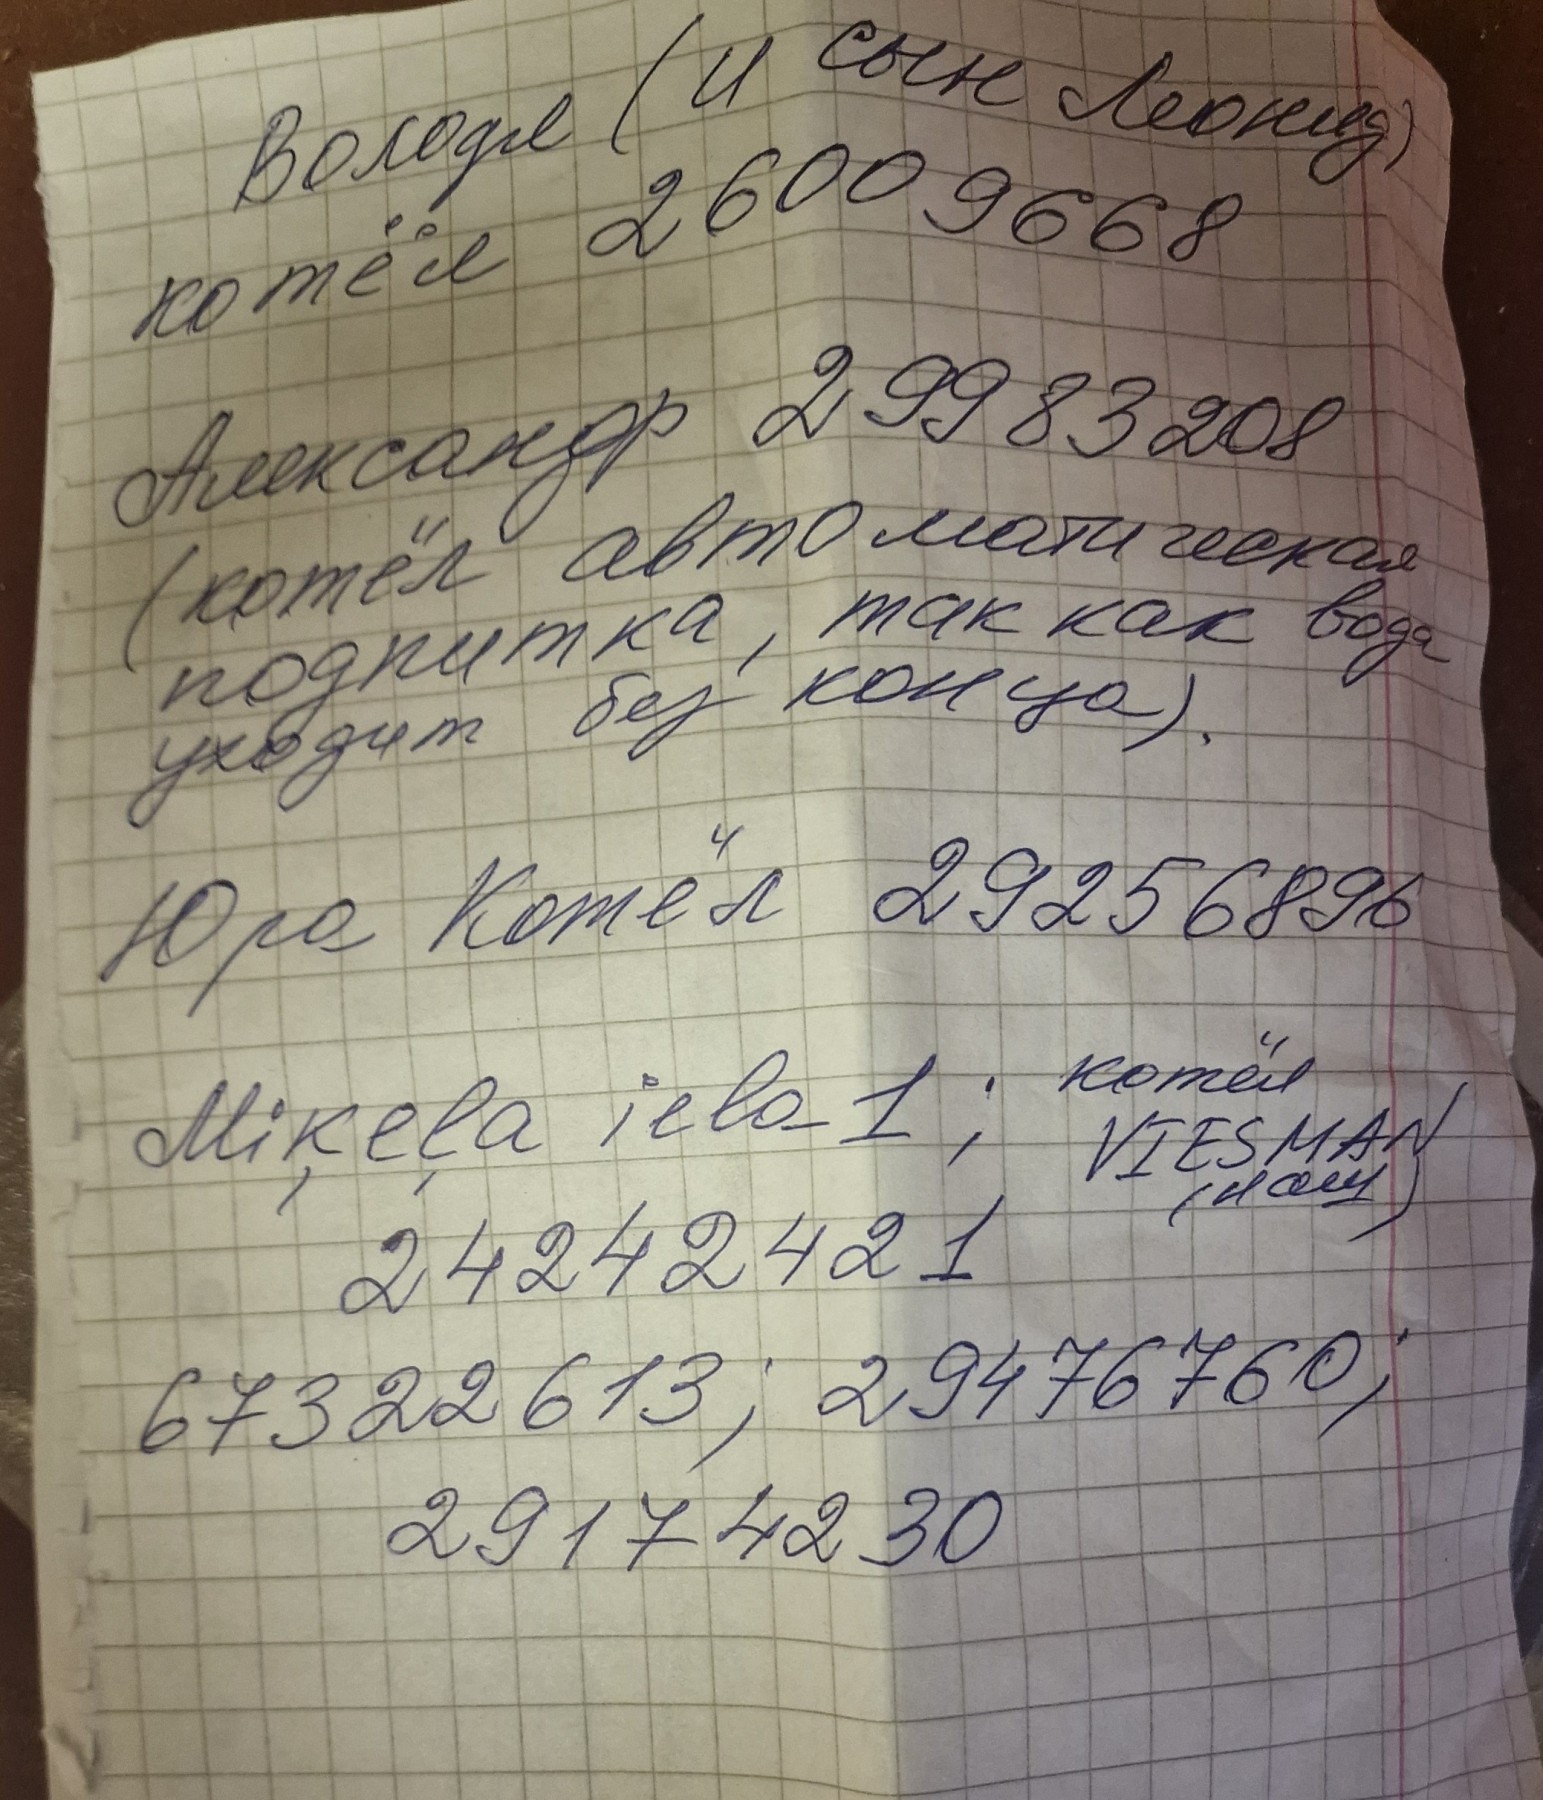 Володя (и сын Леонид)
котёл 26009668
Александр 29983208
(котёл автоматическая
подпитка, так как вода
уходит без конца).
Юра Котёл 29256896
Miķeļa iela 1; котёл
VIESMAN
(наш)
24242421
67322613; 29476760;
29174230